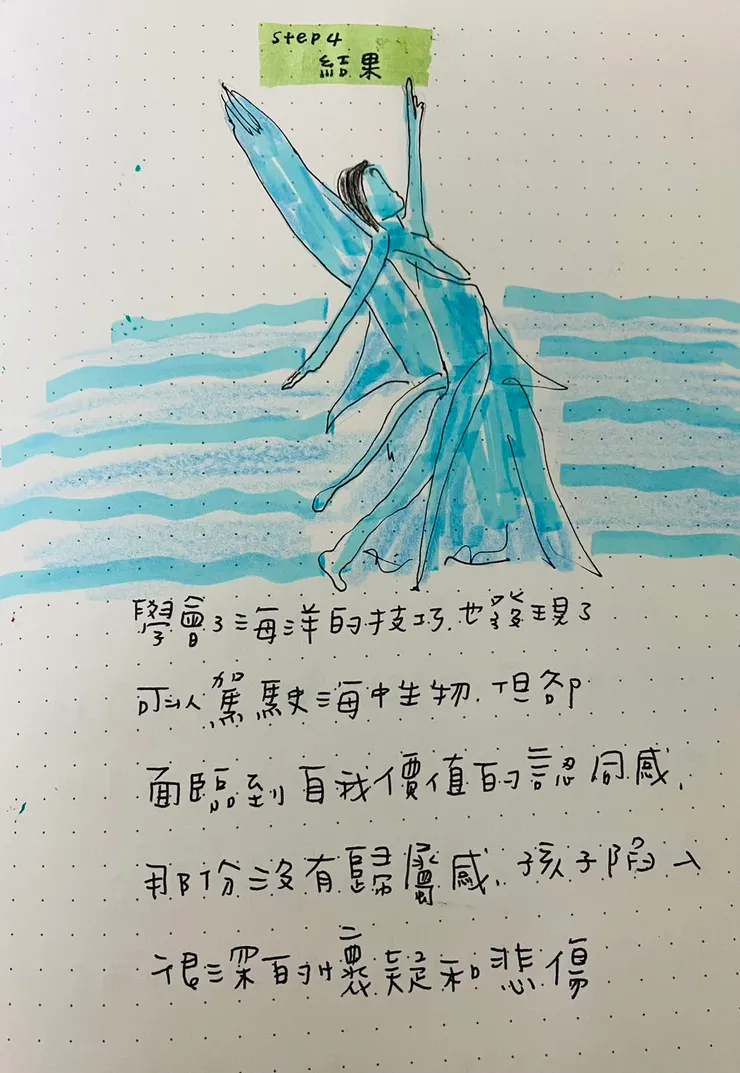 step4
結果
學會了海洋的技巧.也發現了
可以駕駛海中生物.但卻
面臨到自我價值的認同感.
那份沒有歸屬感.孩子陷入
很深的懷疑和悲傷